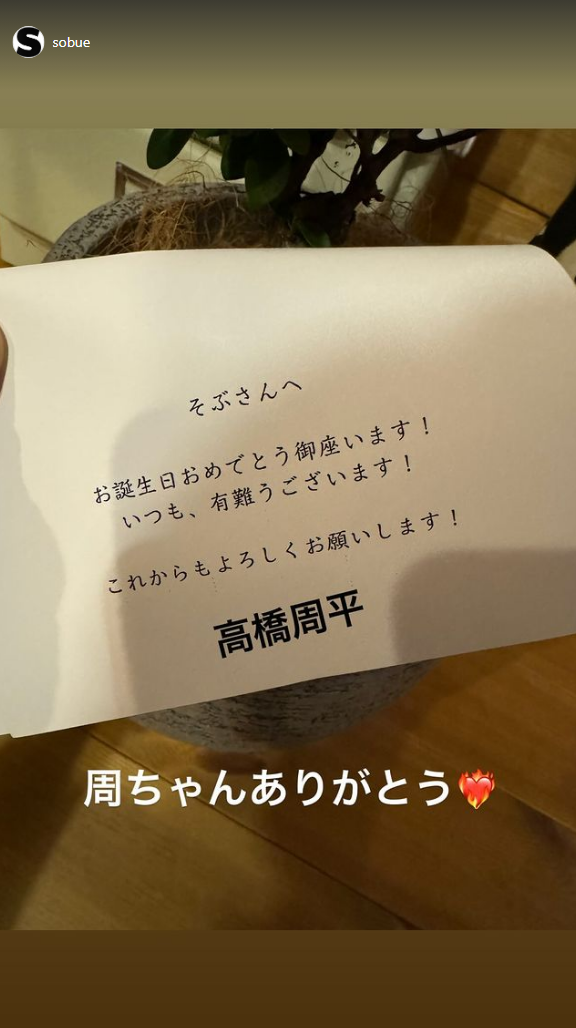 sobue
そぶさんへ
お誕生日おめでとう御座います！
いつも、有難うございます！
これからもよろしくお願いします！
高橋周平
周ちゃんありがとう❤️‍🔥